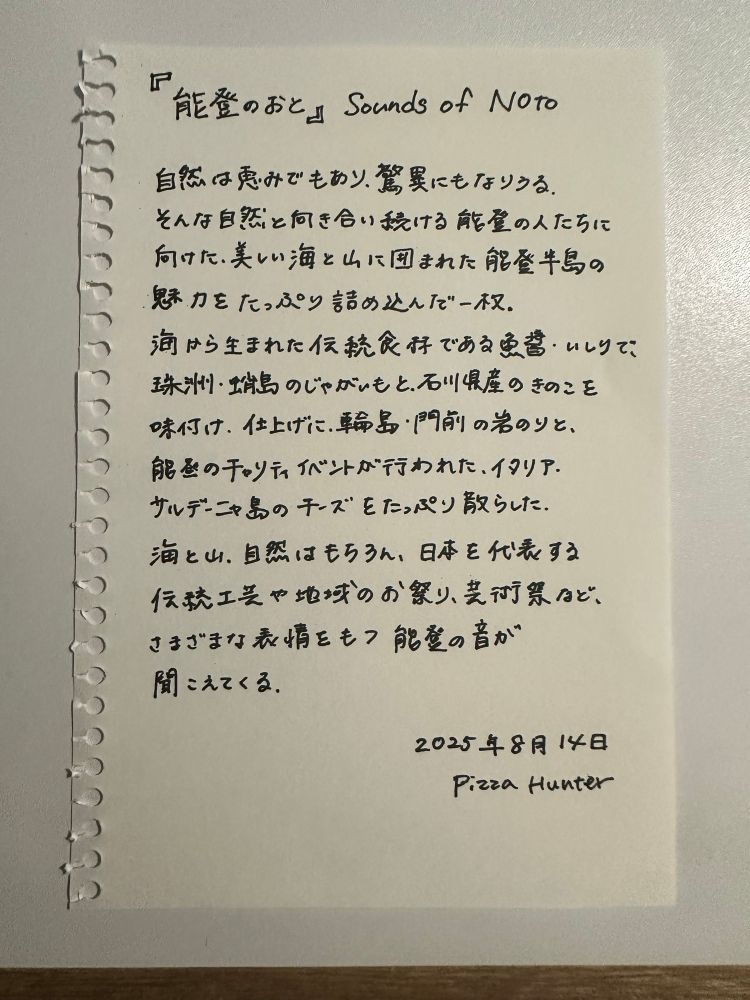 『能登のおと』 Sounds of Noto
自然は恵みでもあり、驚異にもなりうる。
そんな自然と向き合い続ける能登の人たちに
向けた、美しい海と山に囲まれた能登半島の
魅力をたっぷり詰め込んだ一枚。
海から生まれた伝統食材である魚醤・いしりで、
珠洲・蛸島のじゃがいもと、石川県産のきのこを
味付け、仕上げに、輪島・門前の岩のりと、
能登のチャリティイベントが行われた、イタリア・
サルデーニャ島のチーズをたっぷり散らした。
海と山、自然はもちろん、日本を代表する
伝統工芸や地域のお祭り、芸術祭など、
さまざまな表情をもつ能登の音が
聞こえてくる。
2025年8月14日
Pizza Hunter